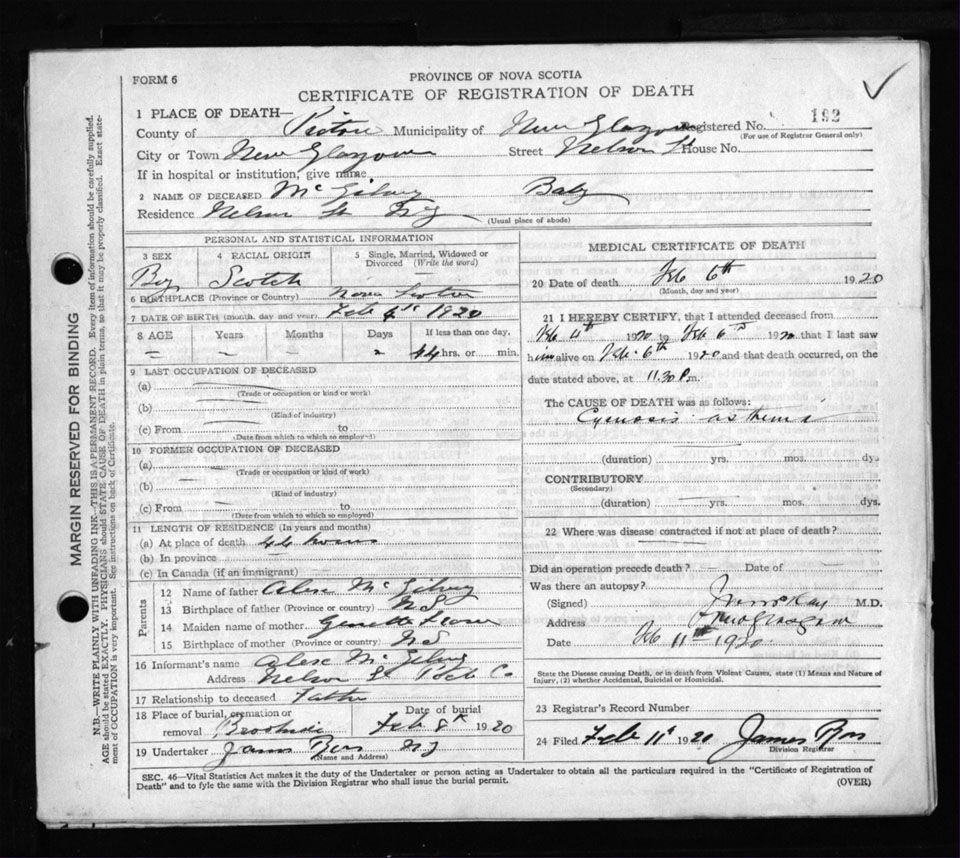 FORM 6
PROVINCE OF NOVA SCOTIA
CERTIFICATE OF REGISTRATION OF DEATH
1 PLACE OF DEATH—
Registered No. 192
(For use of Registrar General only)
County of Pictou Municipality of New Glasgow
City or Town New Glasgow Street Nelson St House No.
If in hospital or institution, give name
2 NAME OF DECEASED McGilvry Baby
Residence Nelson St N.G
(Usual place of abode)
PERSONAL AND STATISTICAL INFORMATION
3 SEX Boy
4 RACIAL ORIGIN Scotch
5 Single, Married, Widowed or Divorced (Write the word)
6 BIRTHPLACE (Province or Country) Nova Scotia
7 DATE OF BIRTH (month, day and year) Feb 4th 1920
8 AGE Years Months Days If less than one day,
— — — 2 44 hrs. or min.
9 LAST OCCUPATION OF DECEASED
(a)
(Trade or occupation or kind or work)
(b)
(Kind of industry)
(c) From to
(Date from which to which so employed)
10 FORMER OCCUPATION OF DECEASED
(a)
(Trade or occupation or kind of work)
(b)
(Kind of industry)
(c) From to
(Date from which to which so employed)
11 LENGTH OF RESIDENCE (In years and months)
(a) At place of death 44 hours
(b) In province —
(c) In Canada (if an immigrant) —
Parents
12 Name of father Alex McGilvry
13 Birthplace of father (Province or country) NS
14 Maiden name of mother
15 Birthplace of mother (Province or country) NS
16 Informant's name Alex McGilvry
Address Nelson St Pict Co
17 Relationship to deceased Father
18 Place of burial, cremation or removal Date of burial Feb 8th 1920
19 Undertaker James Ross N.G
(Name and Address)
MEDICAL CERTIFICATE OF DEATH
20 Date of death Feb 6th 1920
(Month, day and year)
21 I HEREBY CERTIFY, that I attended deceased from
Feb 4th 1920 to Feb 6th 1920 that I last saw
him alive on Feb. 6th 1920 and that death occurred, on the
date stated above, at 11.30 P.m.
The CAUSE OF DEATH was as follows:
Cyanosis asthenia
(duration) yrs. mos. dys
CONTRIBUTORY
(Secondary)
(duration) yrs. mos. dys.
22 Where was disease contracted if not at place of death?
Did an operation precede death — Date of —
Was there an autopsy?
(Signed) McKay M.D.
Address New Glasgow
Date Feb 11th 1920
State the Disease causing Death, or in death from Violent Causes, state (1) Means and Nature of Injury, (2) whether Accidental, Suicidal or Homicidal.
23 Registrar's Record Number
24 Filed Feb 11th 1920 James Ross
Division Registrar
SEC. 46—Vital Statistics Act makes it the duty of the Undertaker or person acting as Undertaker to obtain all the particulars required in the "Certificate of Registration of
Death" and to fyle the same with the Division Registrar who shall issue the burial permit.
(OVER)
MARGIN RESERVED FOR BINDING
N.B.—WRITE PLAINLY WITH UNFADING INK—THIS IS A PERMANENT RECORD. Every item of information should be carefully supplied.
AGE should be stated EXACTLY. PHYSICIANS should STATE CAUSE OF DEATH in plain terms, so that it may be properly classified. Exact state-
ment of OCCUPATION is very important. See instructions on back of Certificate.